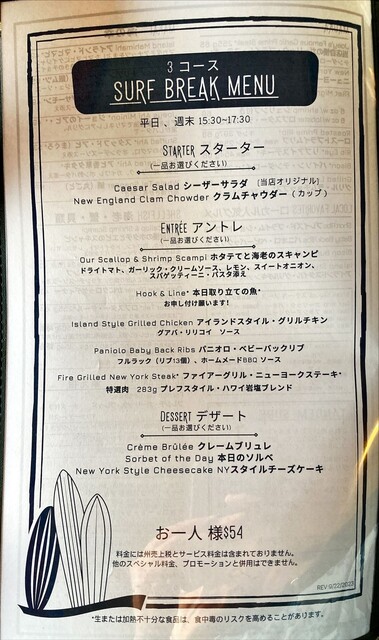 3 コース
SURF BREAK MENU
平日 、週末 15:30~17:30
STARTER スターター
(一品お選びください)
Caesar Salad シーザーサラダ [当店オリジナル]
New England Clam Chowder クラムチャウダー ( カップ )
ENTRÉE アントレ
(一品お選びください)
Our Scallop & Shrimp Scampi ホタテと海老のスキャンピ
ドライトマト、ガーリック・クリームソース、レモン、スイートオニオン、
スパゲッティーニ・パスタ添え
Hook & Line* 本日取り立ての魚*
お申し付け願います!
Island Style Grilled Chicken アイランドスタイル・グリルチキン
グアバ・リリコイ ソース
Paniolo Baby Back Ribs パニオロ・ベビーバックリブ
フルラック (リブ13個) 、ホームメードBBQ ソース
Fire Grilled New York Steak* ファイアーグリル・ニューヨークステーキ*
特選肉 283g プレフスタイル・ハワイ岩塩ブレンド
DESSERT デザート
(一品お選びください)
Crème Brûlée クレームブリュレ
Sorbet of the Day 本日のソルベ
New York Style Cheesecake NYスタイルチーズケーキ
お一人 様$54
料金には州売上税とサービス料金は含まれておりません。
他のスペシャル料金、プロモーションと併用はできません。
REV 9/22/2023
*生または加熱不十分な食品は、食中毒のリスクを高めることがあります。